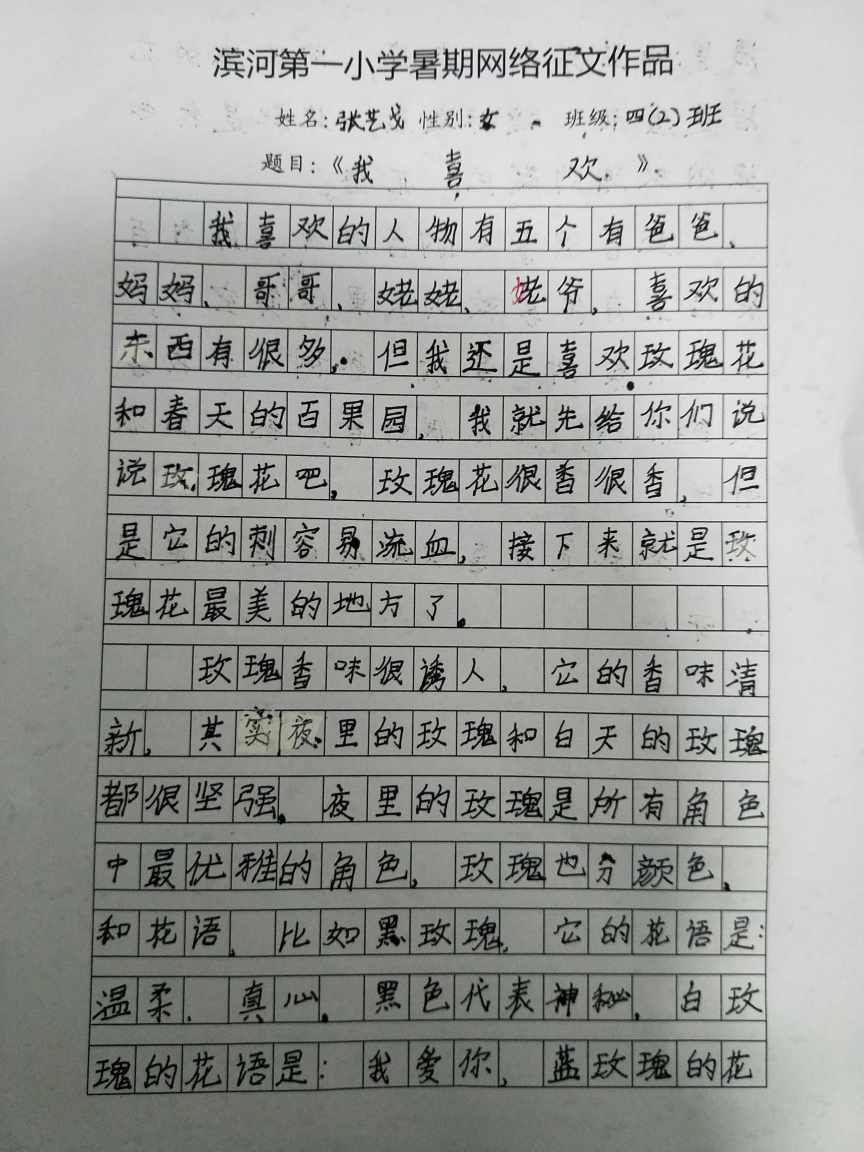 滨河第一小学暑期网络征文作品
姓名:张艺戈 性别:女 班级:四(2)班
题目:《我喜欢》
我喜欢的人物有五个有爸爸、
妈妈、哥哥、姥姥、姥爷,喜欢的
东西有很多,但我还是喜欢玫瑰花
和春天的百果园,我就先给你们说
说玫瑰花吧,玫瑰花很香很香,但
是它的刺容易流血,接下来就是玫
瑰花最美的地方了。
玫瑰香味很诱人,它的香味清
新,其实夜里的玫瑰和白天的玫瑰
都很坚强。夜里的玫瑰是所有角色
中最优雅的角色,玫瑰也分颜色,
和花语,比如黑玫瑰,它的花语是:
温柔、真心。黑色代表神秘,白玫
瑰的花语是:我爱你,蓝玫瑰的花